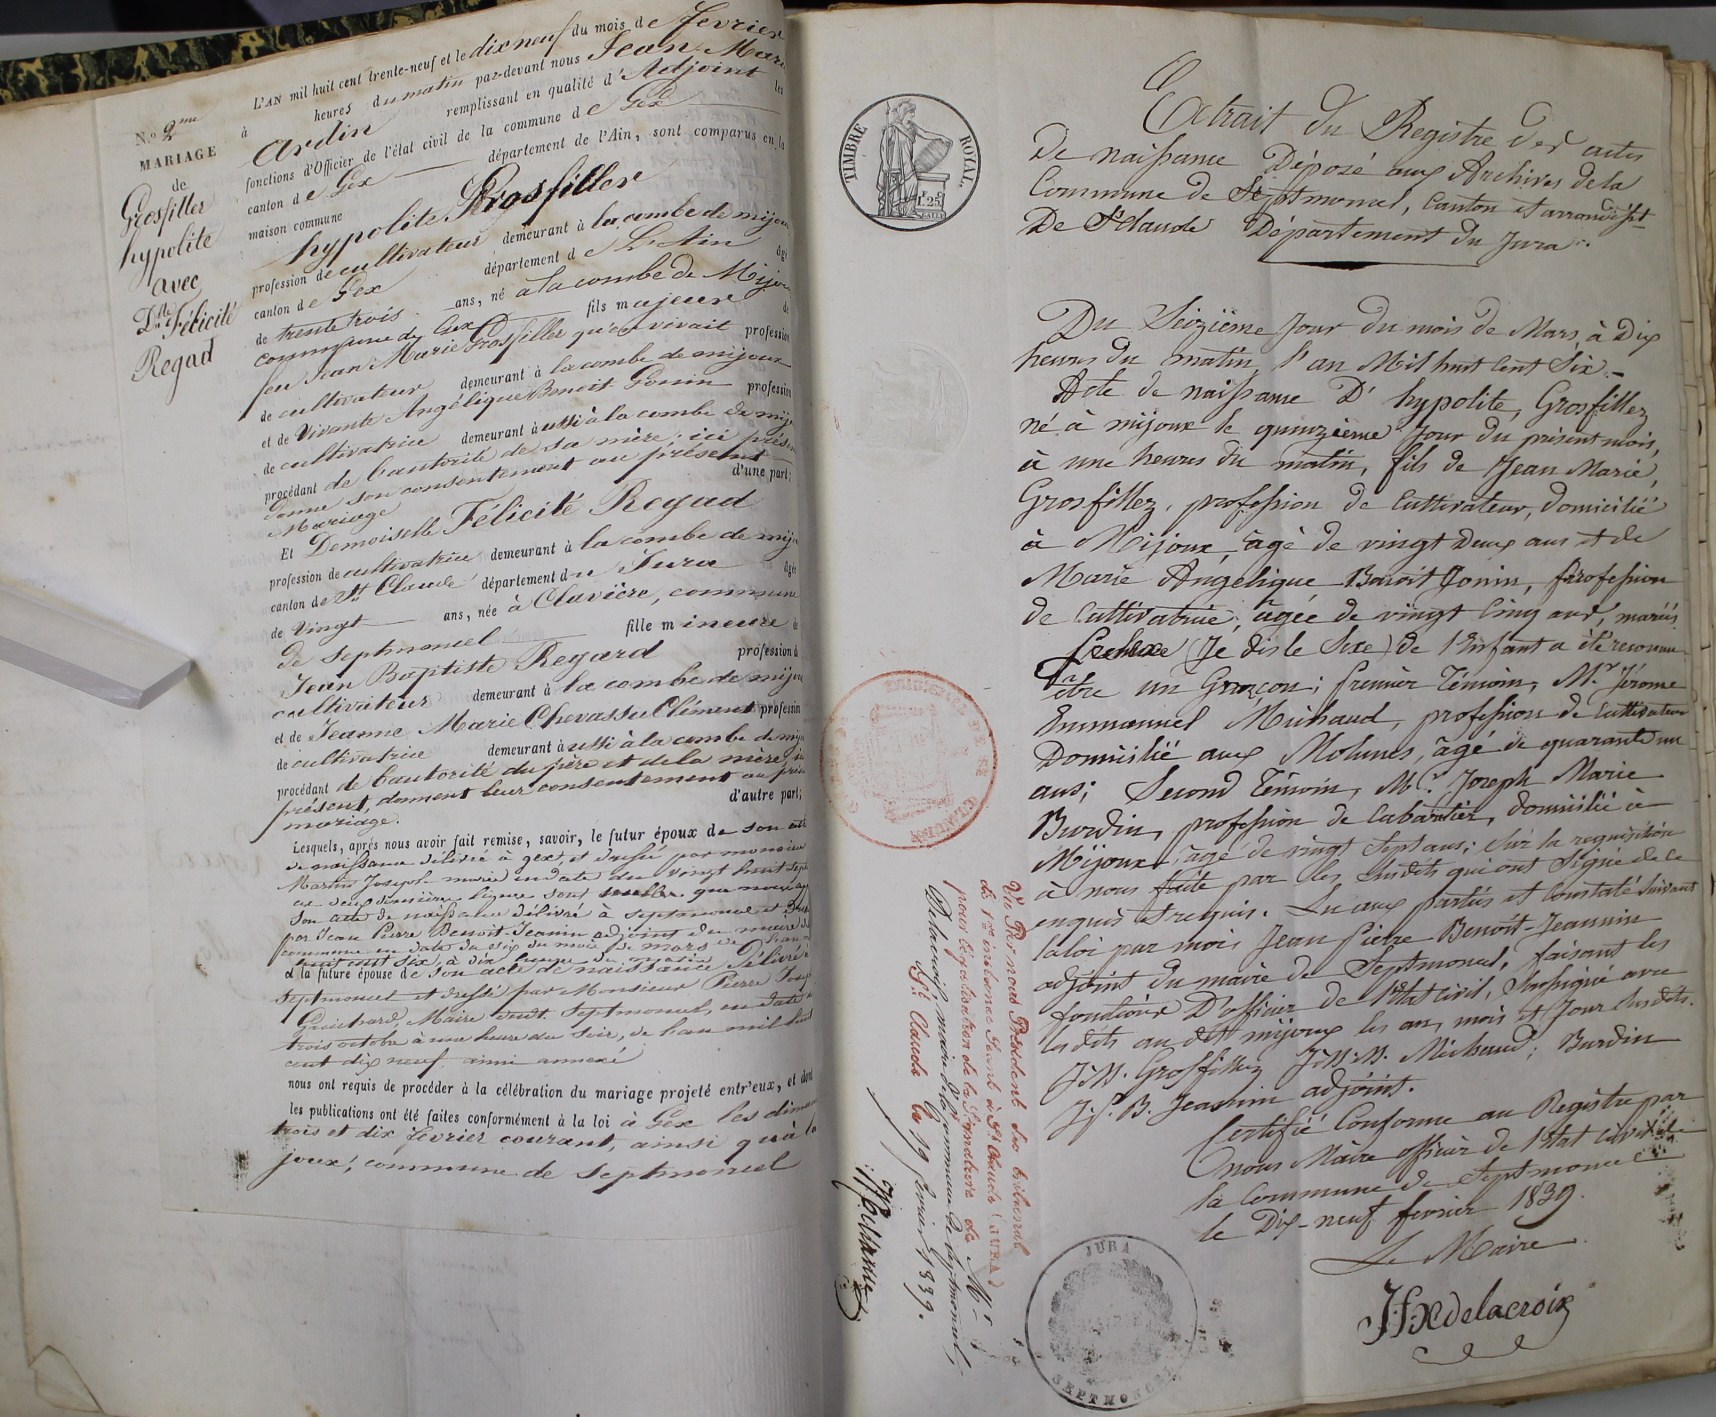 N.o 2me
MARIAGE
de
Grosfiller
hypolite
avec
Dlle Félicité
Regad
L'AN mil huit cent trente-neuf et le dix neuf du mois de fevrier
à heures du matin par-devant nous Jean Marie
Ardin remplissant en qualité d'Adjoint les
fonctions d'Officier de l'état civil de la commune de Gex
canton de Gex département de l'Ain, sont comparus en la
maison commune
hypolite Grosfiller
profession de cultivateur demeurant à la combe de mijoux
canton de Gex département de L'Ain âgé
de trente trois ans, né à la combe de Mijoux
commune de Gex fils majeur de
feu Jean Marie Grosfiller qu'en vivait profession
de cultivateur demeurant à la combe de mijoux
et de vivante Angélique Benoit Gonin profession
de cultivatrice demeurant à ussi à la combe de mij
procédant de l'autorité de sa mère, ici présen
donne son consentement au présent
Mariage d'une part;
Et Demoiselle Félicité Regad
profession de cultivatrice demeurant à la combe de mijo
canton de St Claude département du Jura âgée
de vingt ans, née à Clavière, commune
de septmoncel fille mineure de
Jean Baptiste Regard profession de
cultivateur demeurant à la combe de mijou
et de Jeanne Marie Chevassu Clément profession
de cultivatrice demeurant à ussi à la combe de mijo
procédant de l'autorité du père et de la mère, ici
présent, donnent leur consentement au prés
mariage. d'autre part;
Lesquels, après nous avoir fait remise, savoir, le futur époux de son acte
de naissance délivré à gex, et dressé par monsieur
Martin Joseph marie en date du vingt huit sept
ce deux dernière lignes sont nulles que nous
son acte de naissance délivré à septmoncel et dressé
par Jean Pierre Benoit-Jeanin adjoint du maire de
commune en date du six du mois de mars de l'han
huit cent six, à dix heures du matin
et la future épouse de son acte de naissance délivré à
septmoncel et dressé par Monsieur Pierre Joseph
Guichard, Maire dudt septmoncel, en date du
trois octobre à une heure du soir, de l'han mil huit
cent dix neuf ainsi annexé
nous ont requis de procéder à la célébration du mariage projeté entr'eux, et dont
les publications ont été faites conformément à la loi à Gex les diman
trois et dix fevrier courant, ainsi qu'à la
joux, commune de septmoncel
TIMBRE ROYAL.
1F. 25C
Extrait du Registre des actes
De naissance Déposé aux Archives de la
Commune de Septmoncel, Canton et arrondisst
De St Claude Département du Jura.
Du Seizième Jour du mois de Mars, à Dix
heures du matin, l'an Mil huit Cent Six.
Acte de naissance D' hypolite, Grosfillez
né à mijoux le quinzième Jour du présent mois,
à une heures du matin, fils de Jean Marie,
Grosfillez, profession de Cultivateur, domicilié
à Mijoux, âgé de vingt Deux ans et de
Marie Angélique Benoit Jonin, profession
de Cultivatrice, âgée de vingt Cinq ans, mariés
(Je dis le Sexe) de l'Enfant a été reconnu
être un Garçon; premier Témoin, Mr Jérome
Emmanuel Michaud, profession de Cultivateur
Domicilié aux Molunes, âgé de quarante un
ans; Second Témoin, Mr. Joseph Marie
Burdin, profession de Cabaretier, domicilié à
Mijoux, âgé de vingt Sept ans; Sur la requisition
à nous faite par les Susdits qui ont Signé de ce
enquis et requis. Lu aux parties et Constaté Suivant
la loi par moi Jean Pierre Benoit-Jeannin
adjoint du maire de Septmoncel, faisant les
fonctions D'officier de l'Etat Civil, Soussigné avec
les dits au dit mijoux les an, mois et Jour Susdits.
J. M. Grosfillez J. M. Michaud; Burdin
J. P. B. Jeannin adjoint.
Certifié Conforme au Registre par
nous Maire officier de l'Etat Civil de
la Commune de Septmoncel
le Dix-neuf fevrier 1839.
Le Maire
J f X Delacroix
Vu Par nous Président du tribunal
de 1re instance Séant à St Claude (JURA)
pour légalisation de la Signature de Mr
Delacroix, maire de la commune de Septmoncel,
St Claude le 19 fevrier 1839.
JURA
SEPTMONCEL